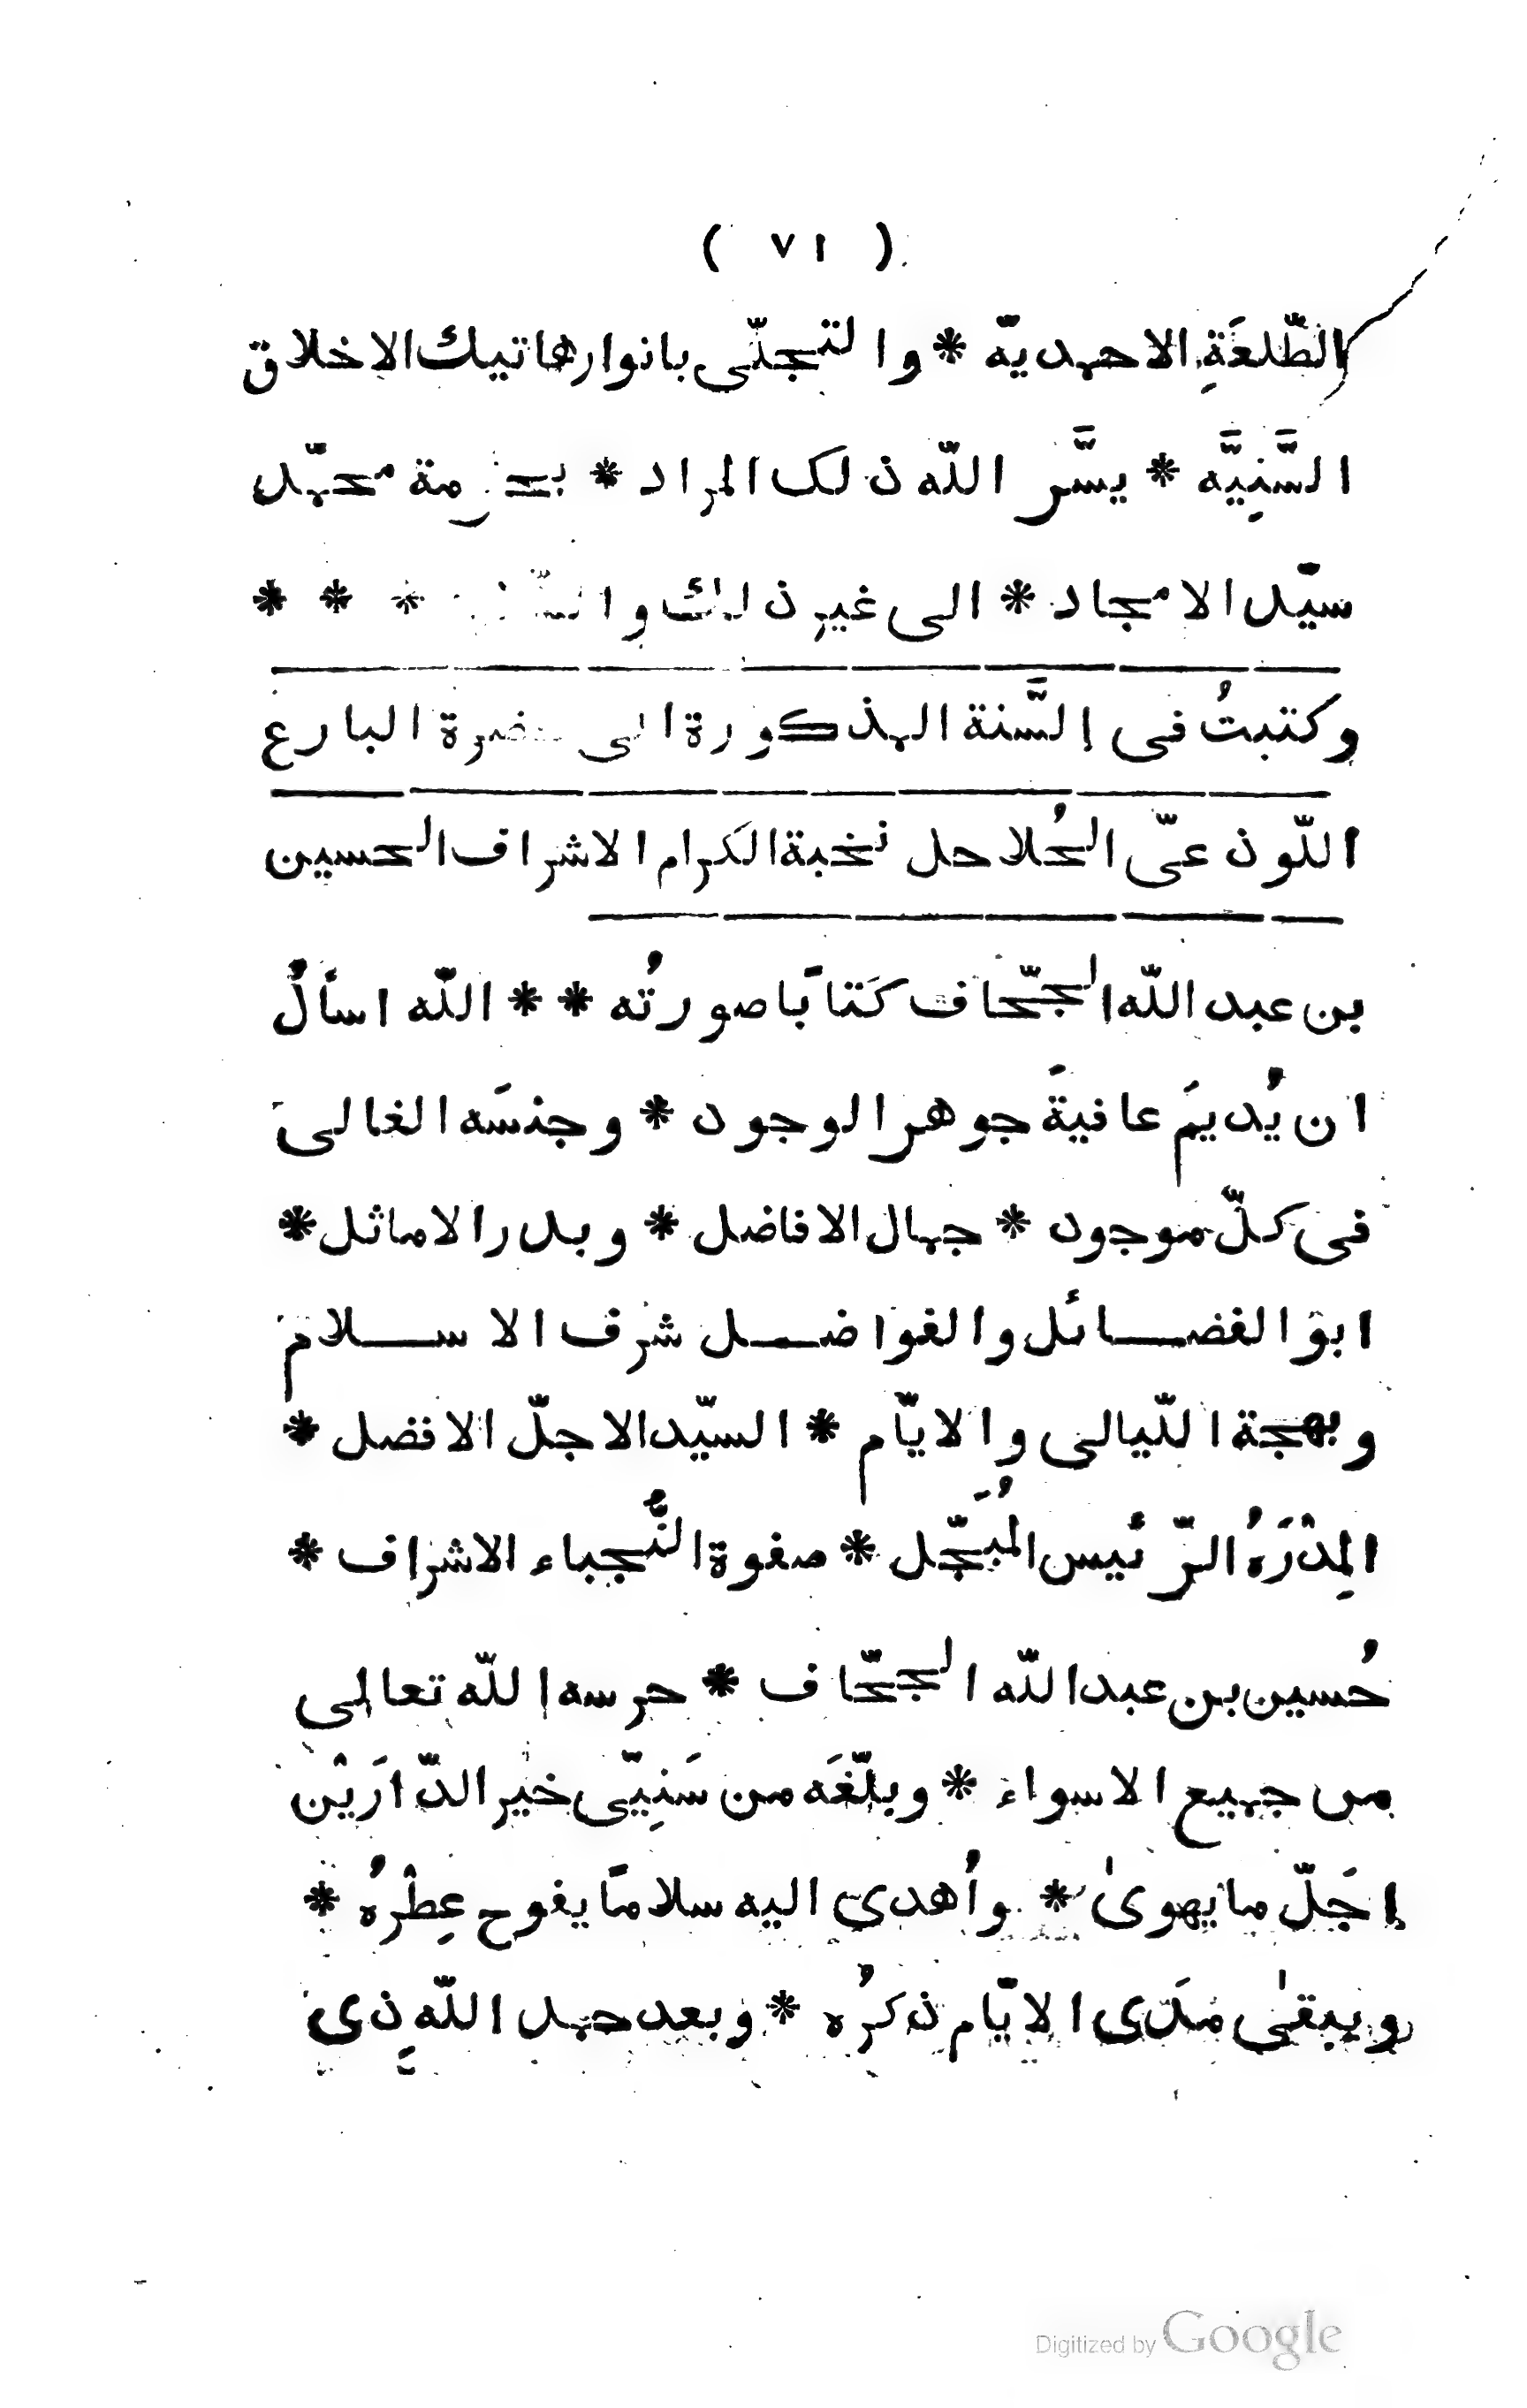 ( ٧١ )
الطّلعَةِ الاحمديّه * والتجلّى بانوارهاتيك الاخلاق
السَّنِيَّه * يسَّر اللّه ذلك المراد * بحرمة محمّد
سيّد الامجاد * الى غير ذلك * * *
وكتبتُ فى السَّنة المذكورة الى حضرة البارع
اللّوذعىّ الحُلاحل نخبة الكرام الاشراف الحسين
بن عبد اللّه الجحّاف كتابًا صورتُه * * اللّه اسألُ
ان يُديمَ عافيةَ جوهر الوجود * وجنسَه الغالى
فى كلّ موجود * جمال الافاضل * وبدر الاماثل *
ابو الفضائل والفواضل شرف الاسلام
وبهجة اللّيالى والايّام * السيّد الاجلّ الافضل *
المِدْرَهُ الرّئيس المُبجّل * صفوة النُّجباء الاشراف *
حُسين بن عبد اللّه الجحّاف * حرسه اللّه تعالى
من جميع الاسواء * وبلّغَه من سَنِيّى خير الدّارَيْن
اجَلّ ما يهوىٰ * واُهدى اليه سلامًا يفوح عِطْرُه *
ويبقىٰ مَدَى الايّام ذكرُه * وبعد حمد اللّه ذِى
Digitized by Google